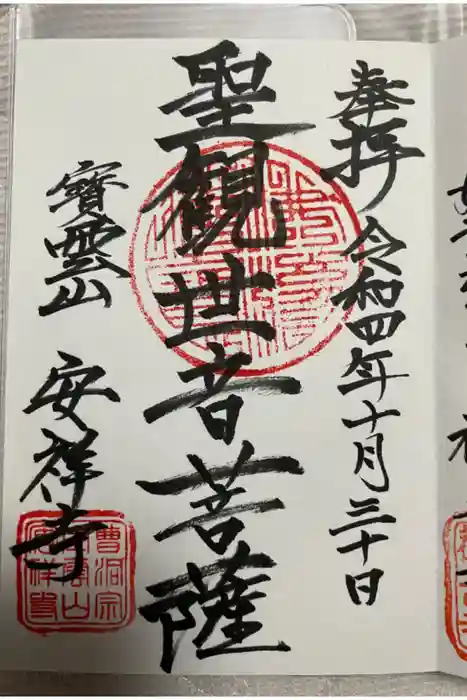 奉拝 令和四年十月三十日
聖観世音菩薩
寶雲山 安祥寺
曹洞宗
寶雲山
安祥寺